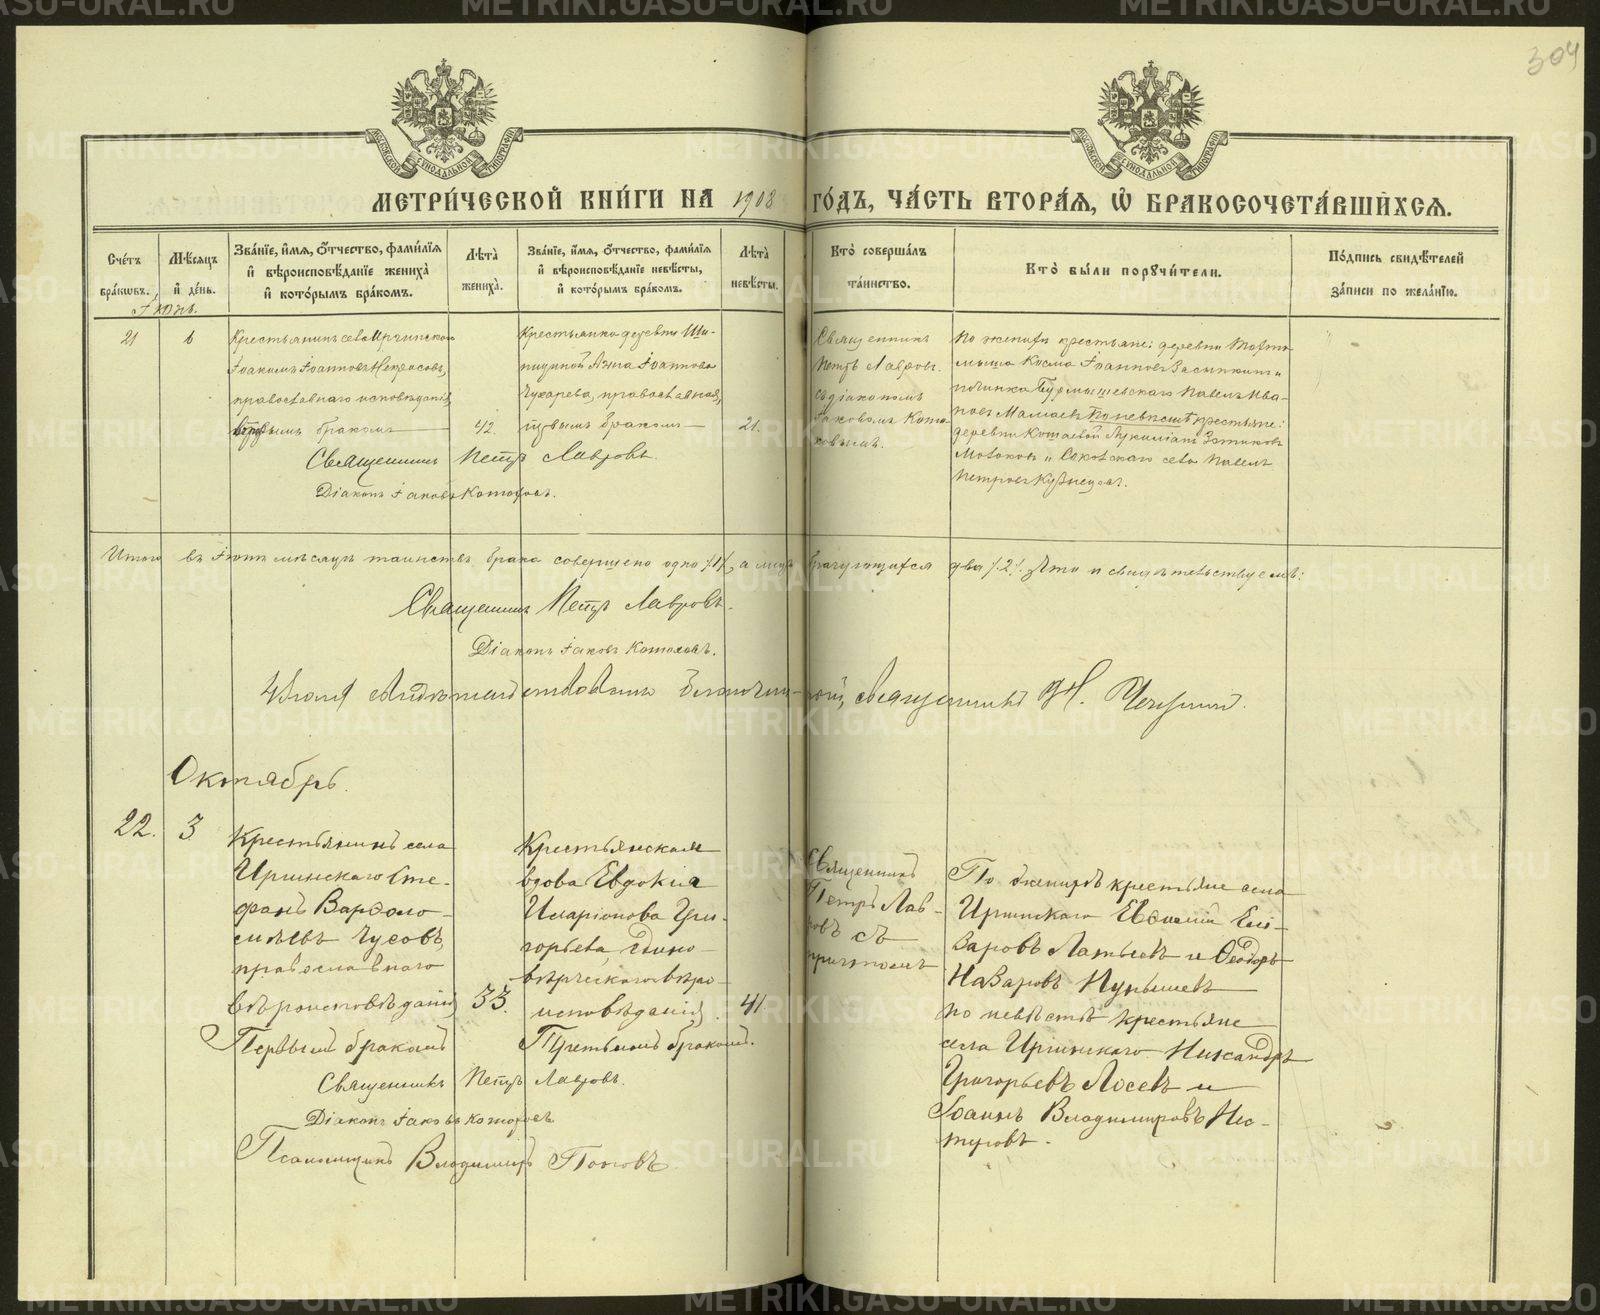 304
МЕТРИ́ЧЕСКОЙ КНИ́ГИ НА 1908 ГО́ДЪ, ЧА́СТЬ ВТОРА́Я, Ѡ҆ БРАКОСОЧЕТА́ВШИХСЯ.
Сче́тъ бра́кѡвъ.
Мѣ́сяцъ и҆ де́нь.
Зва́нїе, и҆́мя, ѻ҆́тчество, фами́лїя и҆ вѣроисповѣ́данїе жениха̀ и҆ кото́рымъ бра́комъ.
Лѣта̀ жениха̀.
Зва́нїе, и҆́мя, ѻ҆́тчество, фами́лїя и҆ вѣроисповѣ́данїе невѣ́сты, и҆ кото́рымъ бра́комъ.
Лѣта̀ невѣ́сты.
Кто̀ соверша́лъ та́инство.
Кто̀ бы́ли порꙋчи́тели.
По́дпись свидѣ́телей за́писи по жела́нїю.
Іюнь.
21
6
Крестьянинъ села Иргинскаго
Іоакимъ Іоанновъ Некрасовъ,
православнаго исповѣданія,
вторымъ бракомъ
42.
Крестьянка деревни Ши-
Анна Іоаннова
православная,
первымъ бракомъ
21.
Священникъ
Петръ Лавровъ
съ діакономъ
Іаковомъ Кото-
ховымъ.
По женихѣ крестьяне: деревни
Косма Іоанновъ
починка Павелъ Ива-
новъ Мамаевъ По невѣстѣ крестьяне:
деревни
села Павелъ
Петровъ Кузнецовъ.
Священникъ Петръ Лавровъ.
Діаконъ Іаковъ
Итого въ Іюнѣ мѣсяцѣ таинствъ брака совершено одно /1/, а лицъ брачующихся два /2/. Что и свидѣтельствуемъ:
Священникъ Петръ Лавровъ.
Діаконъ Іаковъ
священникъ
Октябрь.
22.
3
Крестьянинъ села
Иргинскаго Сте-
фанъ Варѳоло-
мѣевъ Чусовъ,
православнаго
вѣроисповѣданія,
Первымъ бракомъ
33.
Крестьянская
вдова Евдокія
Иларіонова Гри-
горьева, едино-
вѣрческаго вѣро-
исповѣданія,
Третьимъ бракомъ.
41.
Священникъ
Петръ Лав-
ровъ съ
причтомъ
По женихѣ крестьяне села
Иргинскаго Евѳимій Ели-
заровъ Латыевъ и Ѳеодоръ
Назаровъ
по невѣстѣ крестьяне
села Иргинскаго Никандръ
Григорьевъ Лосевъ и
Іоаннъ Владимировъ Нес-
теровъ.
Священникъ Петръ Лавровъ.
Діаконъ Іаковъ
Псаломщикъ Владимиръ Поповъ.
METRIKI.GASO-URAL.RU